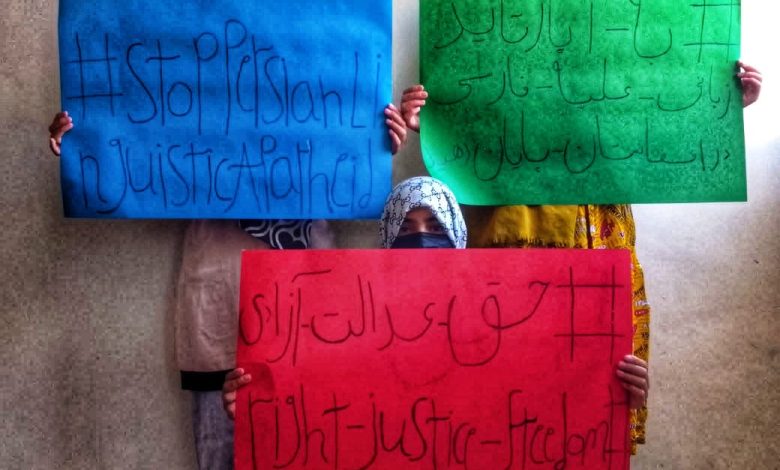 #StopPersianLi
nguisticAparheid
#به_آپارتاید
زبانی_علیه_فارسی
در_افغانستان_پایان_دهید
#حق_عدالت_آزادی
right-justice-freedom